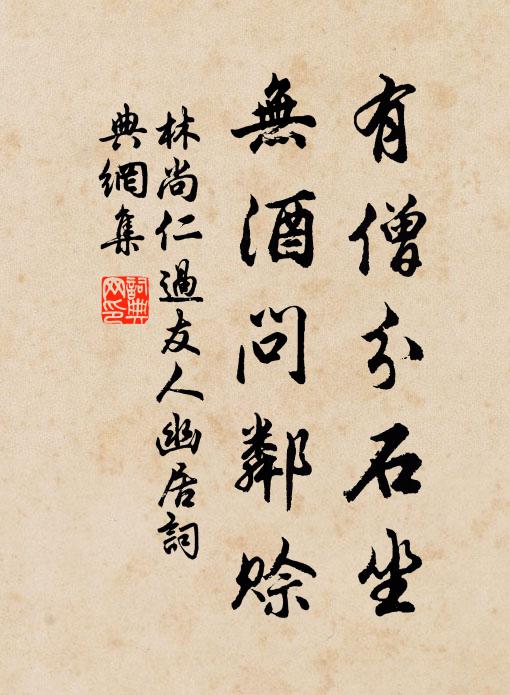 有僧分石坐
無酒問鄰賒
林尚仁過友人幽居詞
典網集
詞典
网印